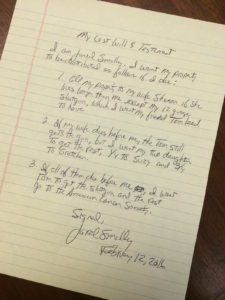 My Last Will & Testament
I am Jared Smelly. I want my property
to be distributed as follows if I die:
1. All my property to my wife Sharon if she
lives longer than me except my 12 gauge
shotgun, which I want my friend Tom
to have
2. If my wife dies before me, then Tom still
gets the gun, but I want my two daughters
to get the rest, ½ to Suzy and ½
to Gretchen.
3. If all of them die before me, I want
Tom to get the shotgun and the rest
go to the American Cancer Society.
Signed,
Jared Smelly
February 12, 2016